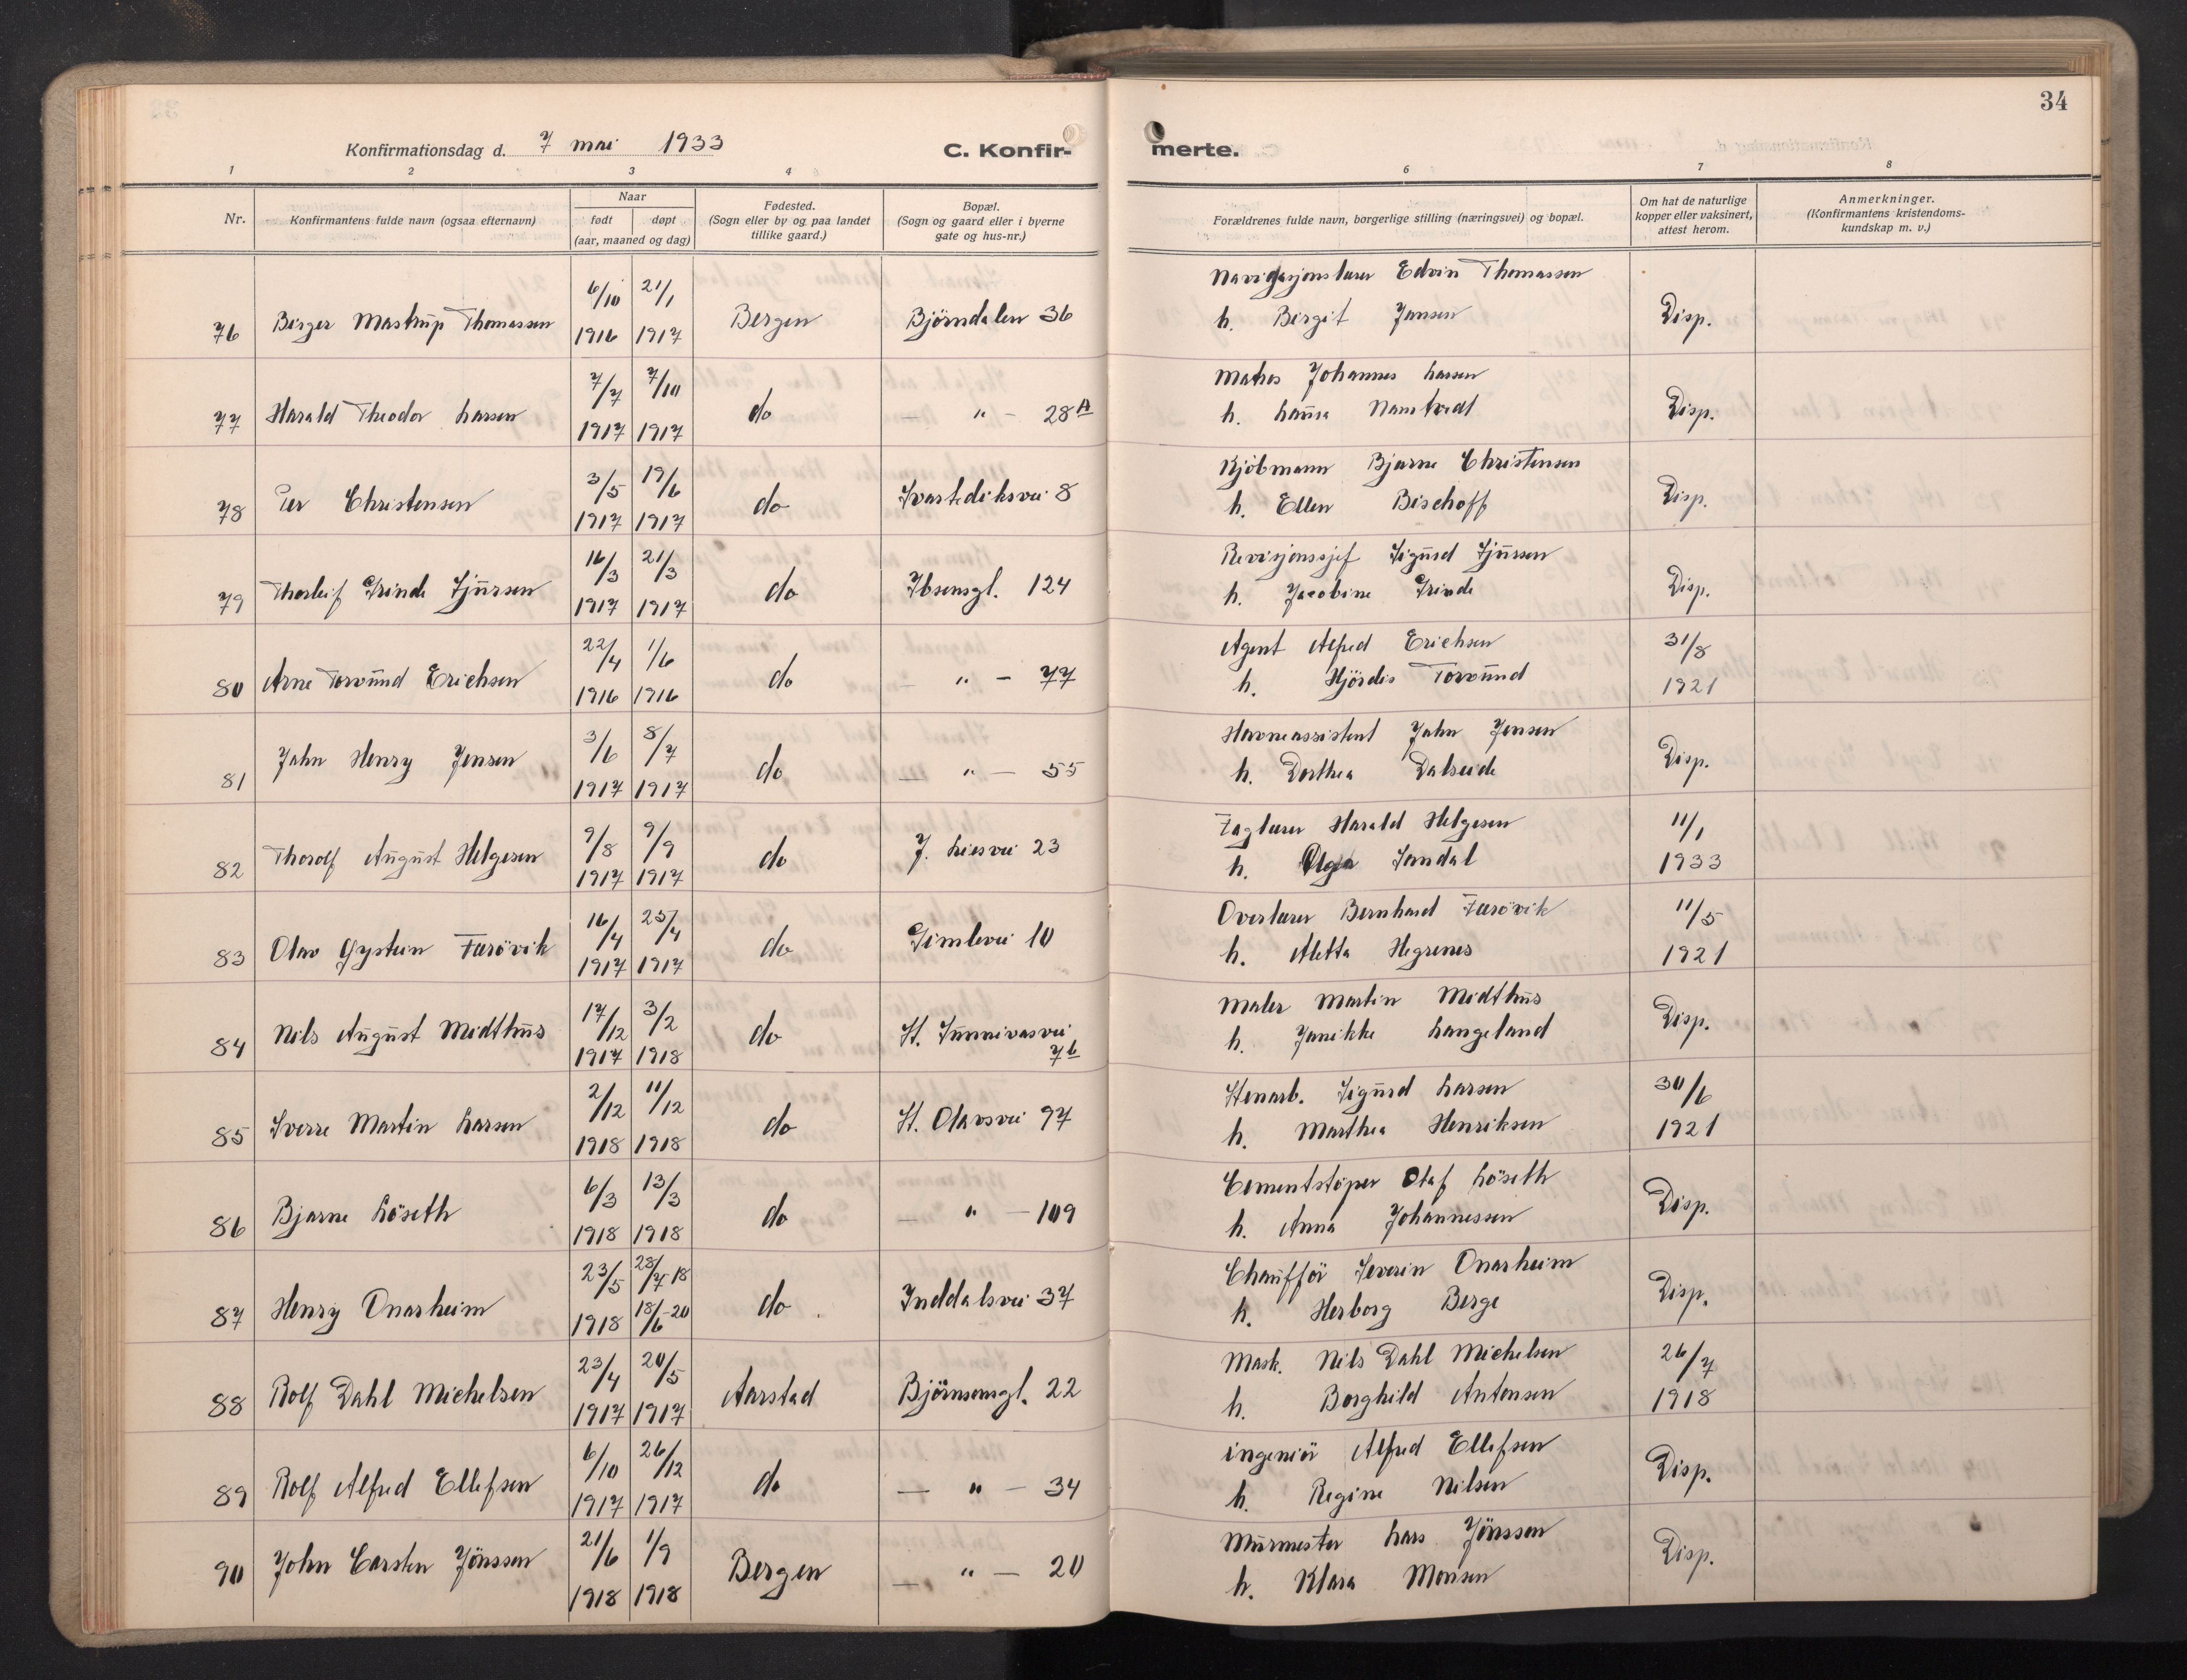 34
Konfirmationsdag d. 7 mai 1933
C. Konfirmerte.
1 2 3 4 6 7 8
Nr.
Konfirmantens fulde navn (ogsaa efternavn)
Naar
født døpt
(aar, maaned og dag)
Fødested.
(Sogn eller by og paa landet
tillike gaard.)
Bopæl.
(Sogn og gaard eller i byerne
gate og hus-nr.)
Forældrenes fulde navn, borgerlige stilling (næringsvei) og bopæl.
Om hat de naturlige
kopper eller vaksinert,
attest herom.
Anmerkninger.
(Konfirmantens kristendoms-
kundskap m. v.)
76 Birger Mastrup Thomassen 6/10 1916 21/1 1917 Bergen Björndalen 36
Navigasjonslærer Edvin Thomassen
h. Birgit Jansen Disp.
77 Harald Theodor Larsen 7/7 1917 7/10 1917 do — " — 28A
Matros Johannes Larsen
h. Namtvedt Disp.
78 Per Christensen 3/5 1917 17/6 1917 do Svartediksvei 8
Kjöbmann Bjarne Christensen
h. Ellen Bischoff Disp.
79 Thorleif Grinde Sjursen 16/3 1917 21/3 1917 do Ibsensgt. 124
Revisjonssjef Sigurd Sjursen
h. Jacobine Grinde Disp.
80 Arne Torvund Erichsen 22/4 1916 1/6 1916 do — " — 77
Agent Alfred Erichsen
h. Hjördis Torvund 31/8 1921
81 Jahn Henry Jensen 3/6 1917 8/7 1917 do — " — 55
Havneassistent Jahn Jensen
h. Dorthea Dalseide Disp.
82 Thorolf August Helgesen 9/8 1917 9/9 1917 do J. Liesvei 23
Faglærer Harald Helgesen
h. Olga Sandal 11/1 1933
83 Olav Öystein Færövik 16/4 1917 25/4 1917 do Gimlevei 10
Overlærer Bernhard Færövik
h. Aletta Hegrenes 11/5 1921
84 Nils August Midthus 17/12 1917 3/2 1918 do St. Sunnivasvei 7b
Maler Martin Midthus
h. Janikke Langeland Disp.
85 Sverre Martin Larsen 2/12 1918 11/12 1918 do St. Olavsvei 97
Stenarb. Sigurd Larsen
h. Marthea Henriksen 30/6 1921
86 Bjarne Löseth 6/3 1918 13/3 1918 do — " — 109
Cementstöper Olaf Löseth
h. Anna Johannessen Disp.
87 Henry Onarheim 23/5 1918 28/7-18 18/6-20 do Inddalsvei 37
Chaufför Severin Onarheim
h. Herborg Berge Disp.
88 Rolf Dahl Michelsen 23/4 1917 20/5 1917 Aarstad Björnsonsgt. 22
Mask. Nils Dahl Michelsen
h. Borghild Antonsen 26/7 1918
89 Rolf Alfred Ellefsen 6/10 1917 26/12 1917 do — " — 34
ingeniör Alfred Ellefsen
h. Regine Nilsen Disp.
90 John Carsten Jönssen 21/6 1918 1/9 1918 Bergen — " — 20
Murmester Lars Jönssen
h. Klara Monsen Disp.